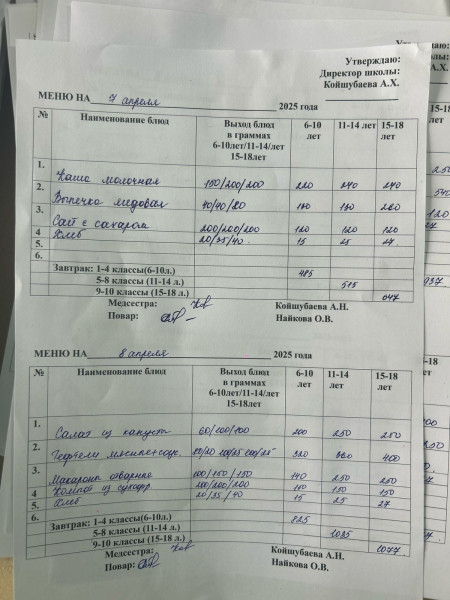 Утверждаю:
Директор школы:
Койшубаева А.Х.
МЕНЮ НА 7 апреля 2025 года
№ Наименование блюд Выход блюд в граммах 6-10лет/11-14/лет 15-18лет 6-10 лет 11-14 лет 15-18 лет
1. Каша молочная 150/200/200 220 240 240
2. Выпечка медовая 40/40/80 180
3. с сахаром 200/200/200 120 120 120
4 Хлеб
5. 20/35/40 15 25 27
6.
Завтрак: 1-4 классы(6-10л.) 485
5-8 классы (11-14 л.) 515
9-10 классы (15-18 л.)
Медсестра: Койшубаева А.Н.
Повар: Найкова О.В.
МЕНЮ НА 8 апреля 2025 года
№ Наименование блюд Выход блюд в граммах 6-10лет/11-14/лет 15-18лет 6-10 лет 11-14 лет 15-18 лет
1. Салат из капусты 60/100/100 200 250 250
2. Тефтели 320 400
3. Макароны отварные 100/150/150 140 250 250
4 Компот из 200/200/200 150 150 150
5. Хлеб 20/35/40 15 25 27
6.
Завтрак: 1-4 классы(6-10л.) 825
5-8 классы (11-14 л.)
9-10 классы (15-18 л.) 1077
Медсестра: Койшубаева А.Н.
Повар: Найкова О.В.